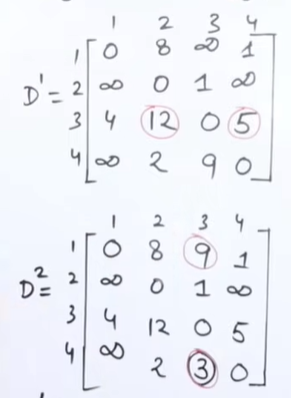 1 2 3 4
1 0 8 ∞ 1
D¹= 2 ∞ 0 1 ∞
3 4 12 0 5
4 ∞ 2 9 0
1 2 3 4
1 0 8 9 1
D²= 2 ∞ 0 1 ∞
3 4 12 0 5
4 ∞ 2 3 0